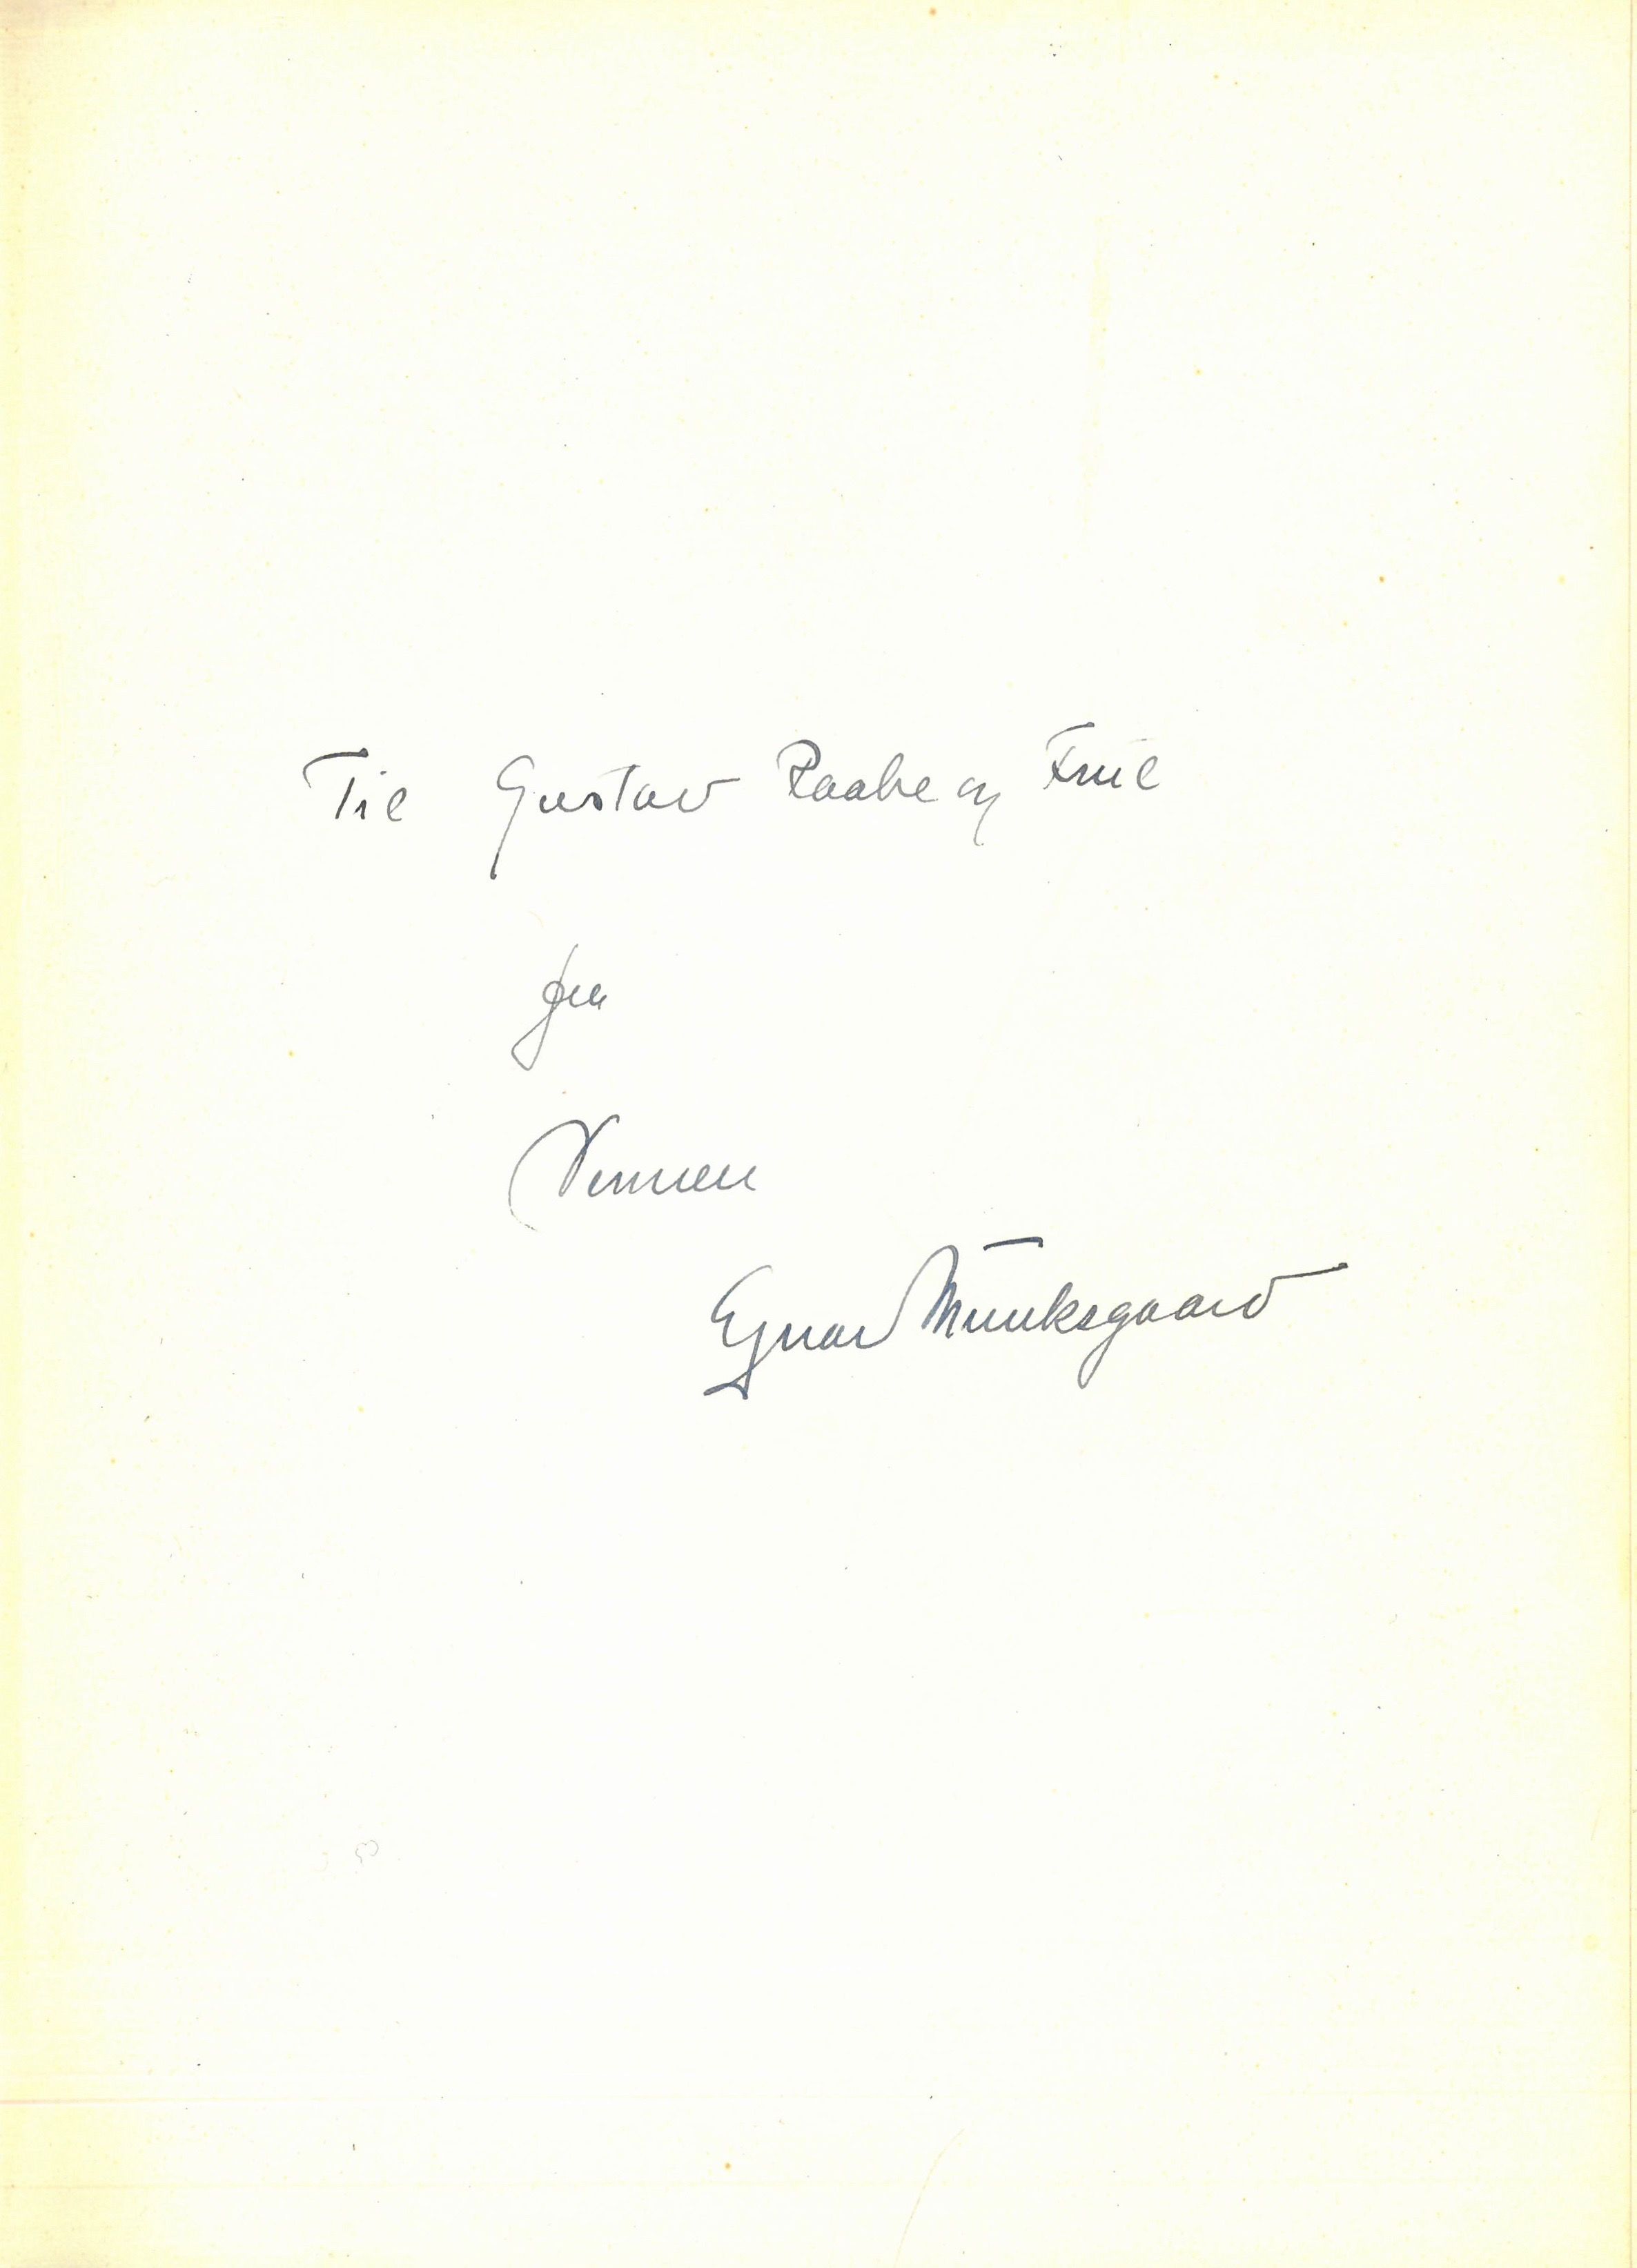 Til Gustav Raabe og Frue
fra
Vennen
Ejnar Munksgaard